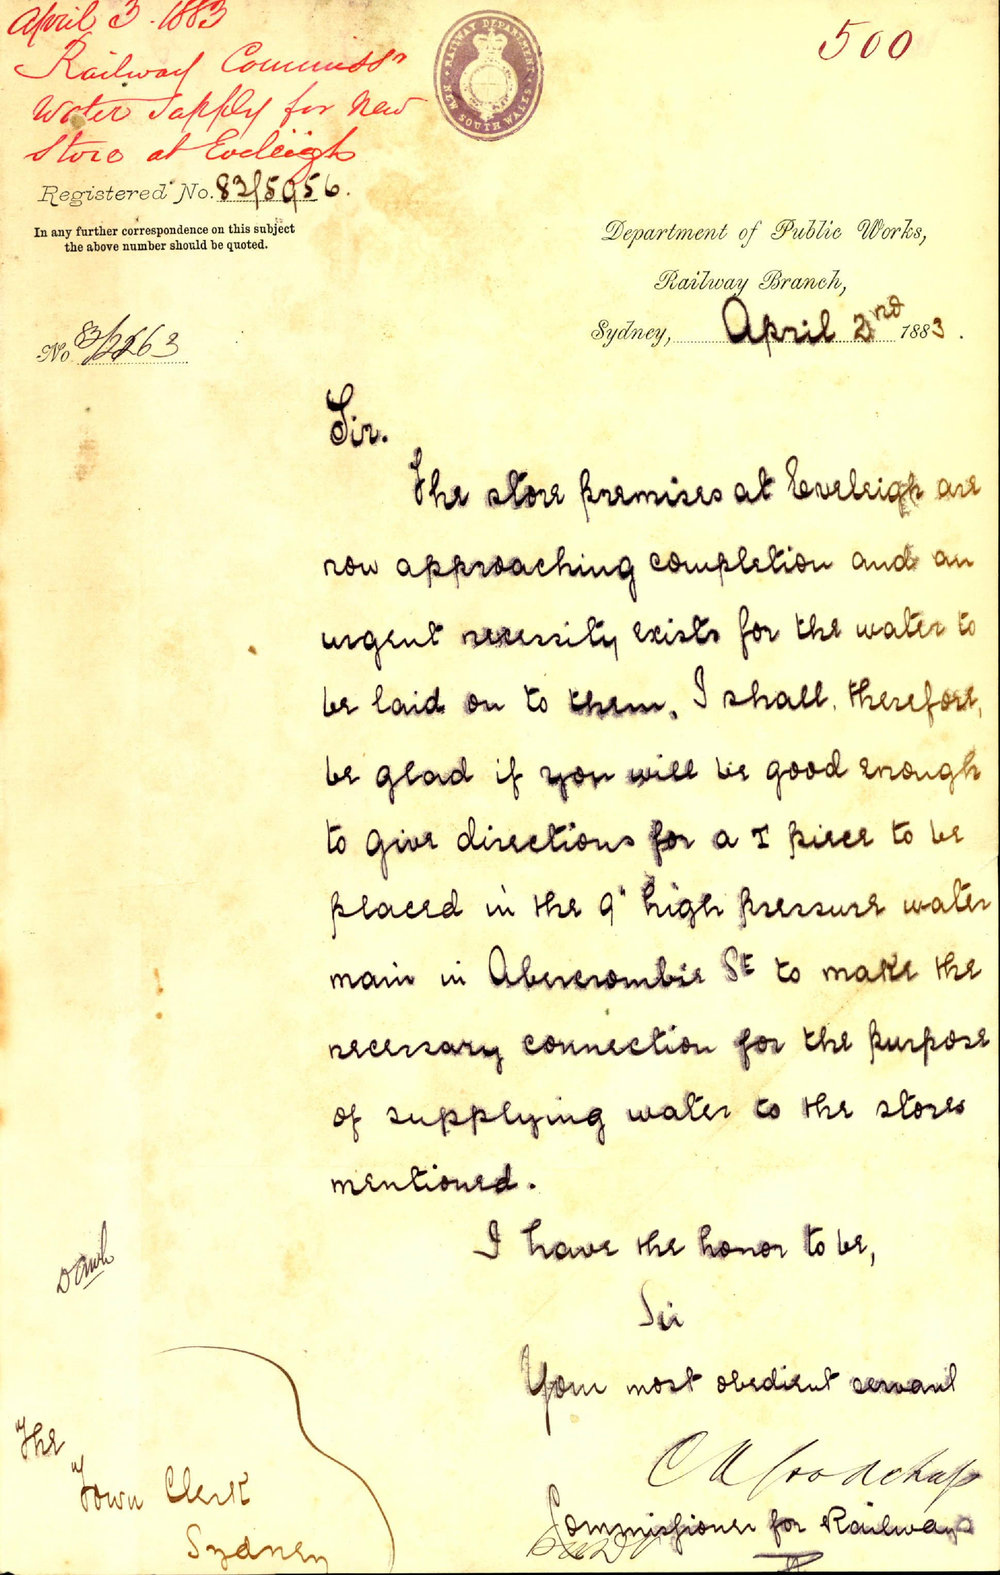 April 3. 1883
Railway Commissr
Water Supply for New
Store at Eveleigh
RAILWAY DEPARTMENT
NEW SOUTH WALES
500
Registered No. 83/5956.
In any further correspondence on this subject
the above number should be quoted.
Department of Public Works,
Railway Branch,
Sydney, April 2nd 1883.
No
Sir.
The store premises at Eveleigh are
now approaching completion and an
urgent necessity exists for the water to
be laid on to them. I shall, therefore,
be glad if you will be good enough
to give directions for a T piece to be
placed in the 9" high pressure water
main in Abercrombie St to make the
necessary connection for the purpose
of supplying water to the stores
mentioned.
I have the honor to be,
Sir
Your most obedient servant
Commissioner for Railways
The
Town Clerk
Sydney